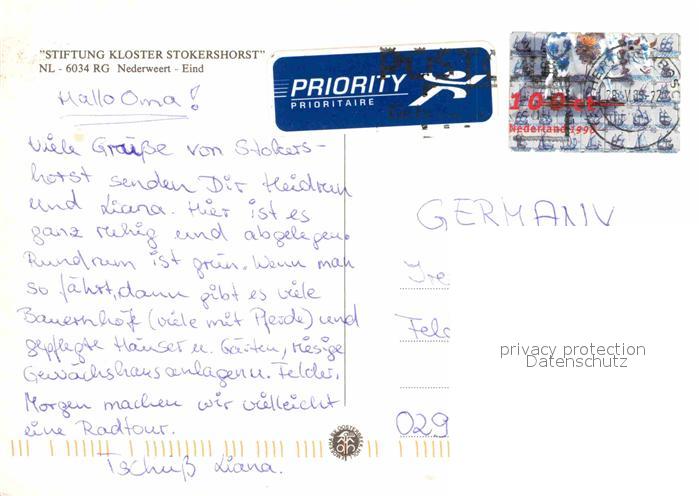 "STIFTUNG KLOSTER STOKERSHORST"
NL - 6034 RG Nederweert - Eind
Hallo Oma!
Viele Grüße von Stokers-
horst senden Dir Heidrun
und Liana. Hier ist es
ganz ruhig und abgelegen.
Rundrum ist grün. Wenn man
so fährt, dann gibt es viele
Bauernhöfe (viele mit Pferde) und
gepflegte Häuser u. Gärten, riesige
Gewächshausanlagen u. Felder.
Morgen machen wir vielleicht
eine Radtour.
Tschüß Liana.
PRIORITY
PRIORITAIRE
100 ct
Nederland 1998
GERMANY
Ire
Feld
029
privacy protection
Datenschutz